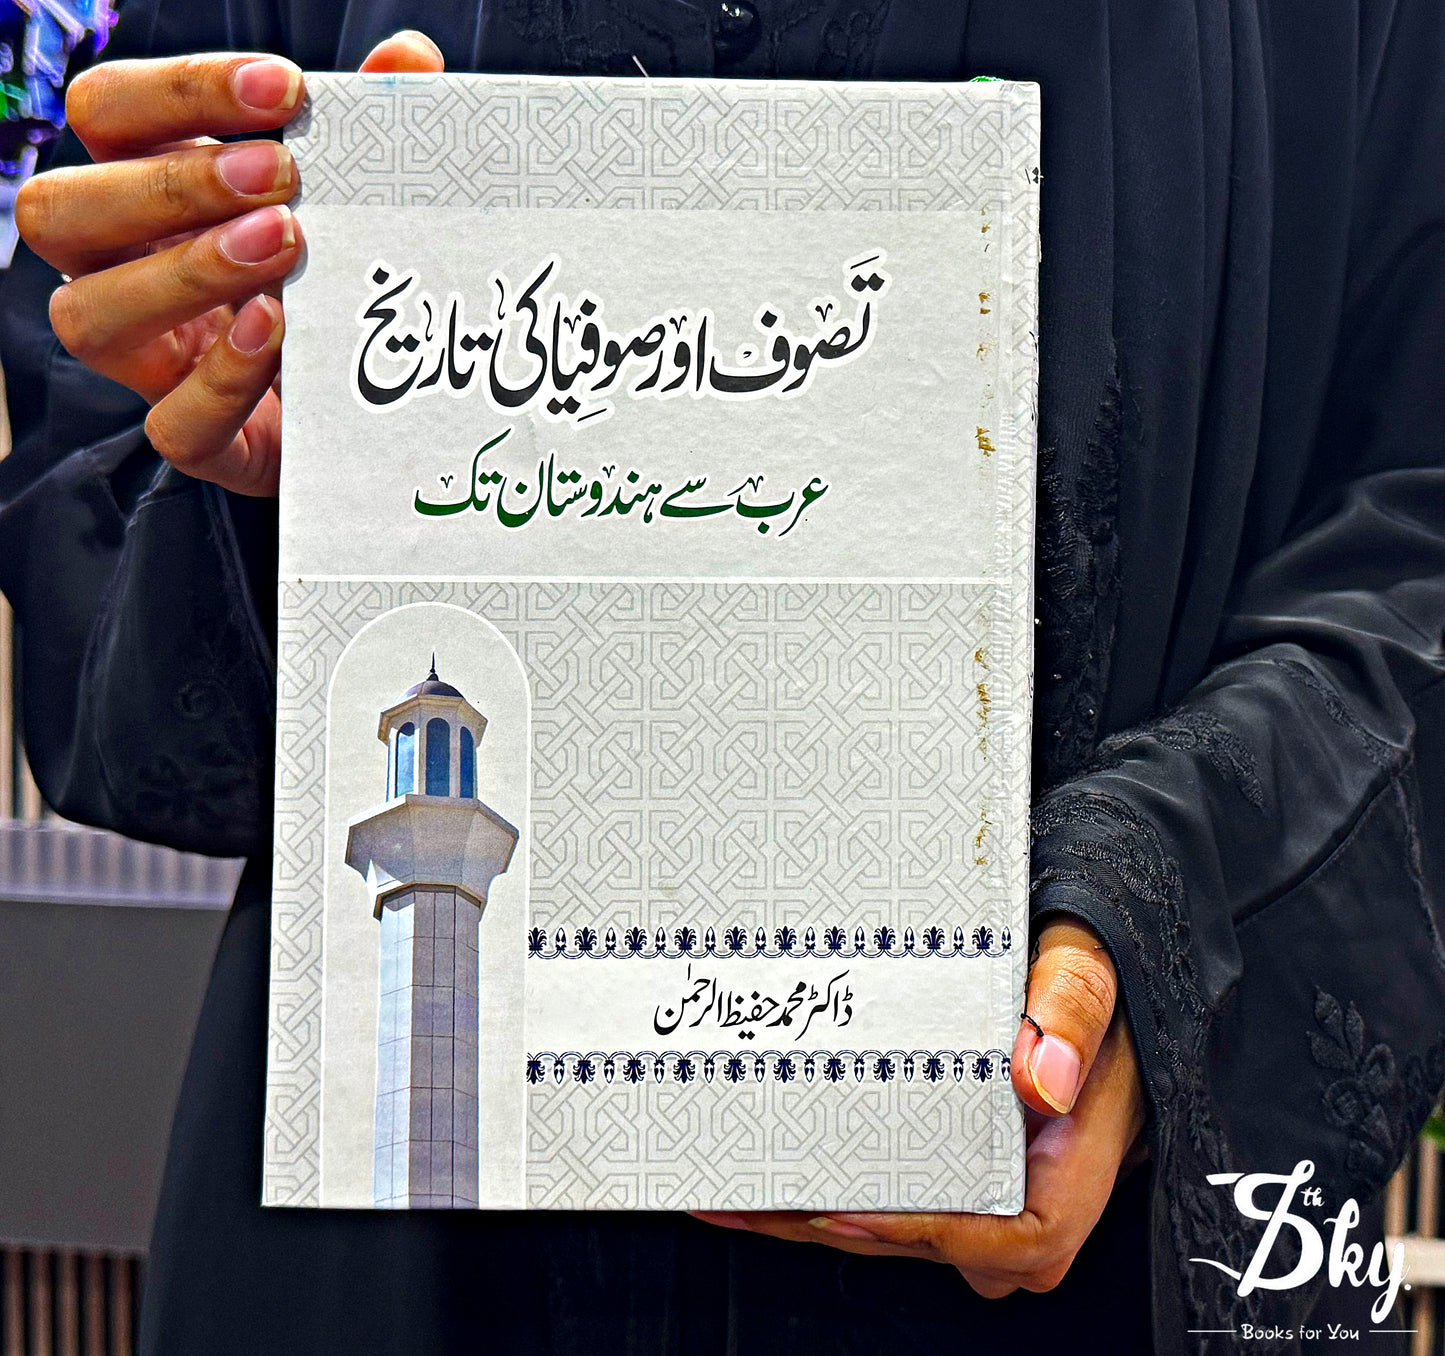 تصوف اور صوفیا کی تاریخ
عرب سے ہندوستان تک
ڈاکٹر محمد حفیظ الرحمٰن
8th Sky.
Books for You